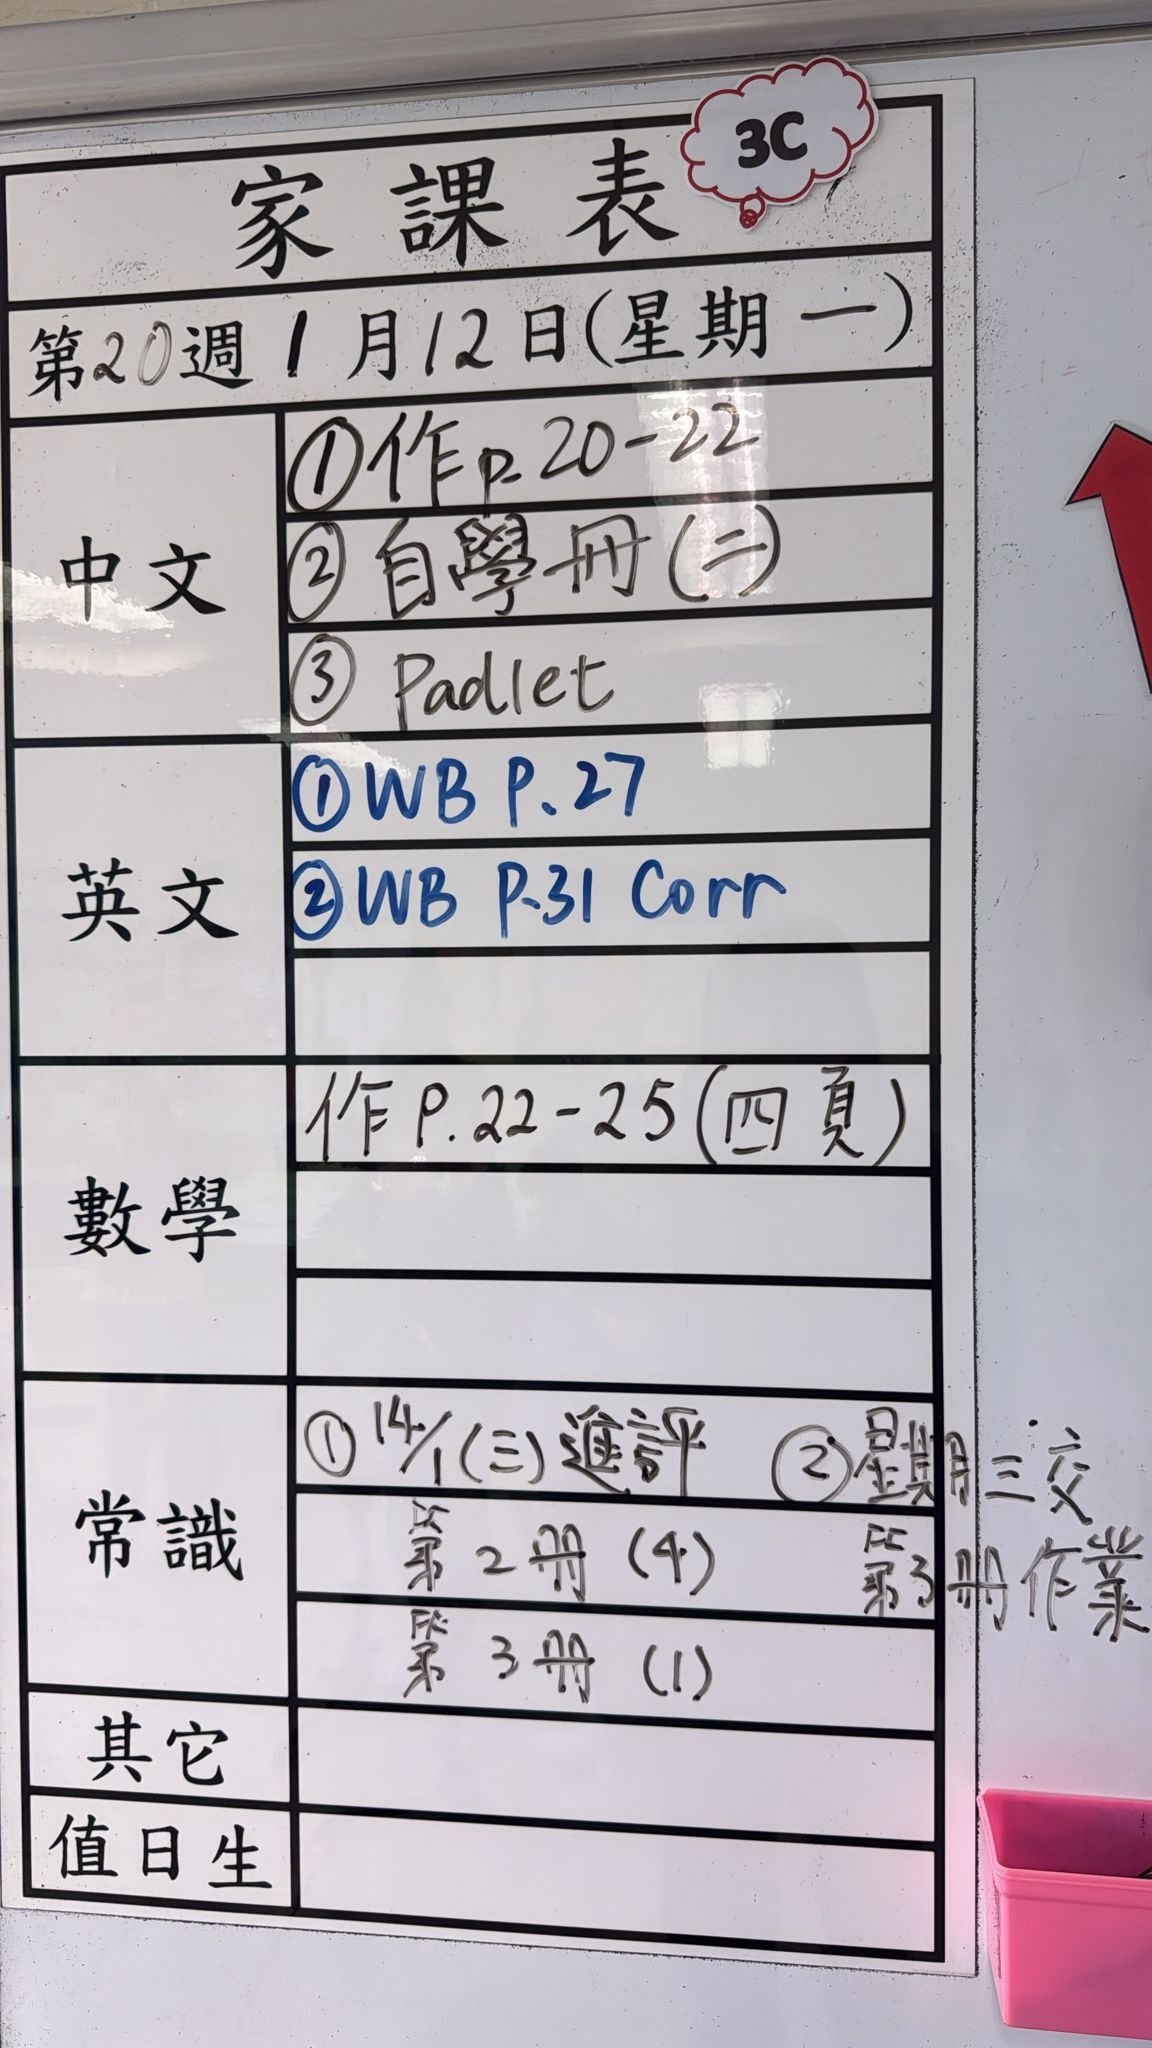 3C
家課表
第20週 1月12日(星期一)
中文
①作p.20-22
②自學冊(二)
③ Padlet
英文
①WB P.27
②WB P.31 Corr
數學
作P.22-25(四頁)
常識
①14/1(三)進評 ②星期三交
第2冊(4) 第3冊作業
第3冊(1)
其它
值日生